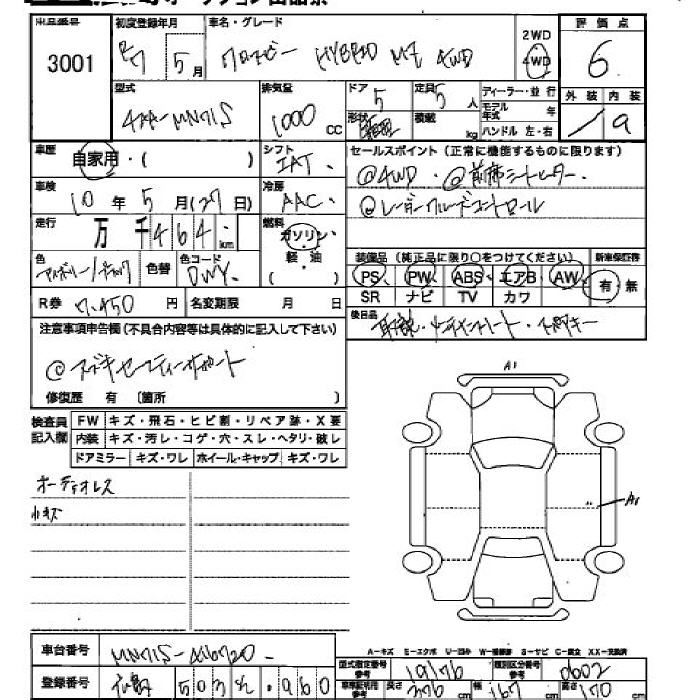 出品番号 3001
初度登録年月 R7 5月
車名・グレード クロスビー HYBRID MZ 4WD
2WD
4WD
評価点 6
型式 4AA-MND1S
排気量 1000 CC
ドア 5
定員 5 人
形状
積載 kg
ディーラー・並行
モデル年式 年
ハンドル 左・右
外装 内装
/ a
車歴 自家用・( )
シフト IAT.
車検 10年5月(27日)
冷房 AAC.
走行 万千464 km
燃料 ガソリン・
軽・油
( )
色 アイボリー/
色替
色コード DWY.
R券 7.450 円
名変期限 月 日
セールスポイント(正常に機能するものに限ります)
@4WD・@前席シートヒーター.
@レーダークルーズコントロール
装備品(純正品に限り○をつけてください)
新車保証書
PS PW ABS エアB AW
有・無
SR ナビ TV カワ
後日品 取説・メンテナンスノート・スペアキー
注意事項申告欄(不具合内容等は具体的に記入して下さい)
@スズキセーフティーサポート
修復歴 有 〔箇所 〕
検査員記入欄
FW キズ・飛石・ヒビ割・リペア跡・X要
内装 キズ・汚レ・コゲ・穴・スレ・ヘタリ・破レ
ドアミラー キズ・ワレ ホイール・キャップ キズ・ワレ
オーディオレス
小キズ
A1
A1
A-キズ E-エクボ U-凹み W-補修跡 S-サビ C-腐食 XX-交換済
車台番号
登録番号 503 960
型式指定番号 参考 19176
類別区分番号 参考 0602
車庫証明用 参考 長さ 376 cm 幅 167 cm 高さ 170 cm